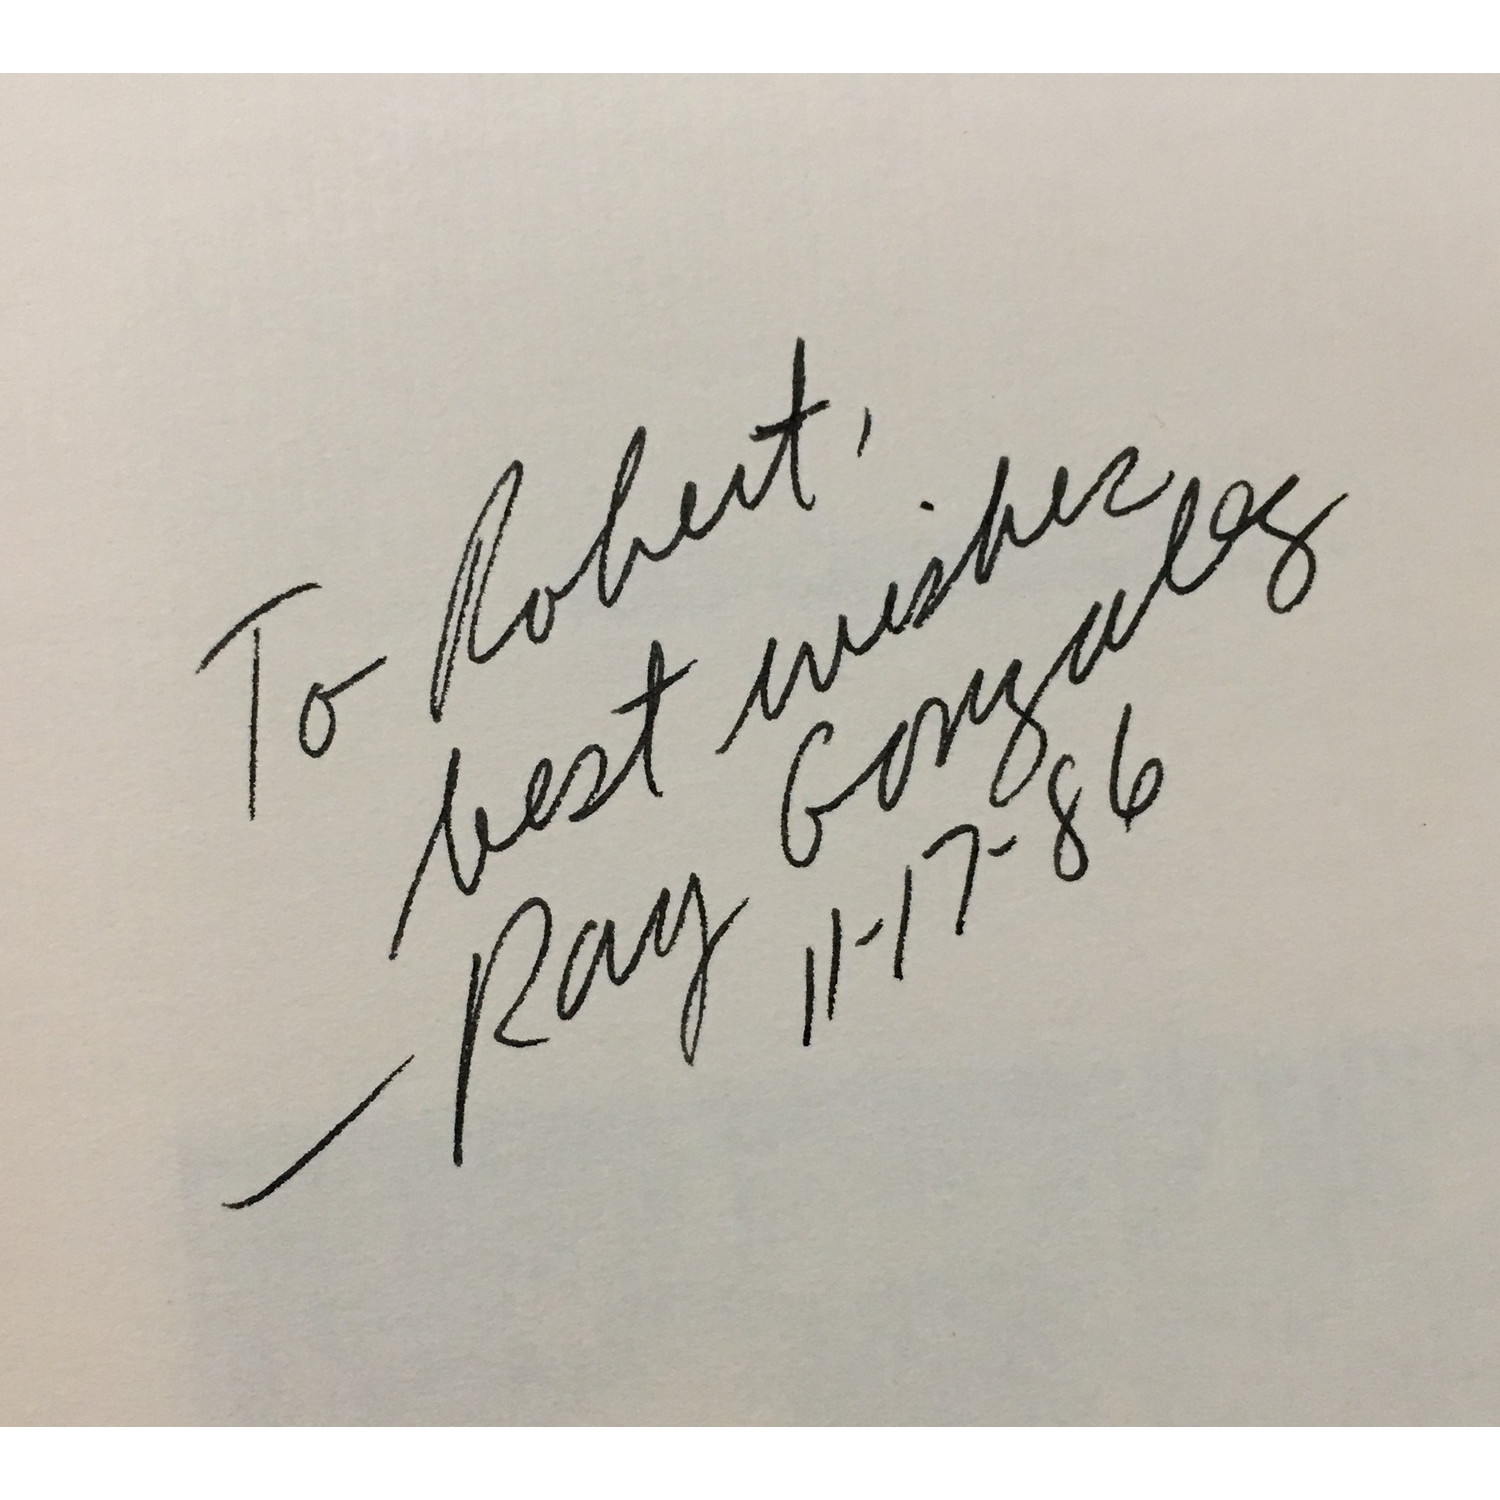 To Robert,
best wishes
— Ray Gonzales
11-17-86